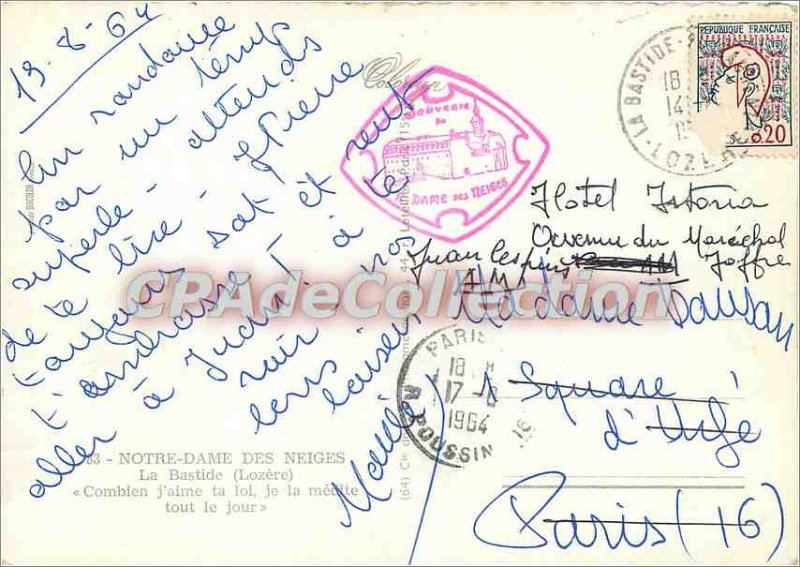 13-8-64
En randonnée
par un temps
superbe - attends
de te lire - J Pierre
toujours sat et veut
t'embrasser
aller à Juan
voir
bons baisers
Colorisé
SOUVENIR
DE
N. DAME DES NEIGES
LA BASTIDE
18
14
LOZÈRE
REPUBLIQUE FRANÇAISE
0,20
Hotel Astoria
avenue du Maréchal
Joffre
Juan les pins
AM
Madame Dausan
1 Square
d'Urfé
Paris (16)
CPAdeCollection.com
PARIS
18 H
17-8
1964
R. POUSSIN
16
- NOTRE-DAME DES NEIGES
La Bastide (Lozère)
« Combien j'aime ta loi, je la médite
tout le jour »